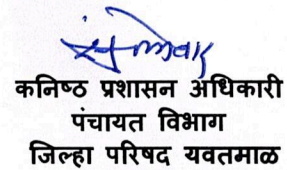 कनिष्ठ प्रशासन अधिकारी
पंचायत विभाग
जिल्हा परिषद यवतमाळ